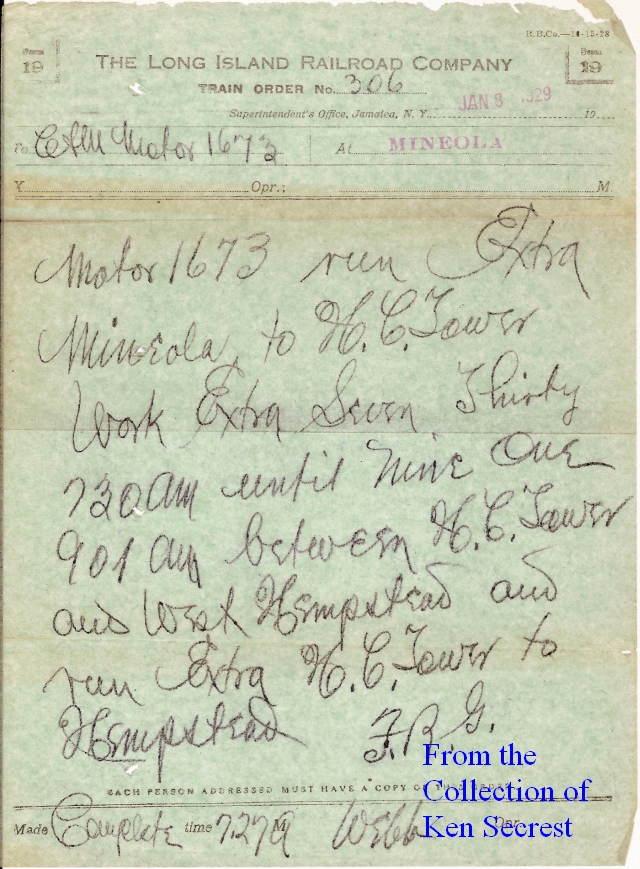 R.B.Co.—11-15-28
Form 19
Form 19
THE LONG ISLAND RAILROAD COMPANY
TRAIN ORDER No. 306
Superintendent's Office, Jamaica, N. Y. JAN 8 1929 19
To C&M Motor 1673 At MINEOLA
X Opr.; M.
Motor 1673 run Extra
Mineola to H.C. Tower
Work Extra Seven Thirty
730 AM until Nine One
901 AM between H.C. Tower
and West Hempstead and
run Extra H.C. Tower to
Hempstead F.R.G.
EACH PERSON ADDRESSED MUST HAVE A COPY OF THIS ORDER
Made Complete time 727A M Webb Opr.
From the
Collection of
Ken Secrest